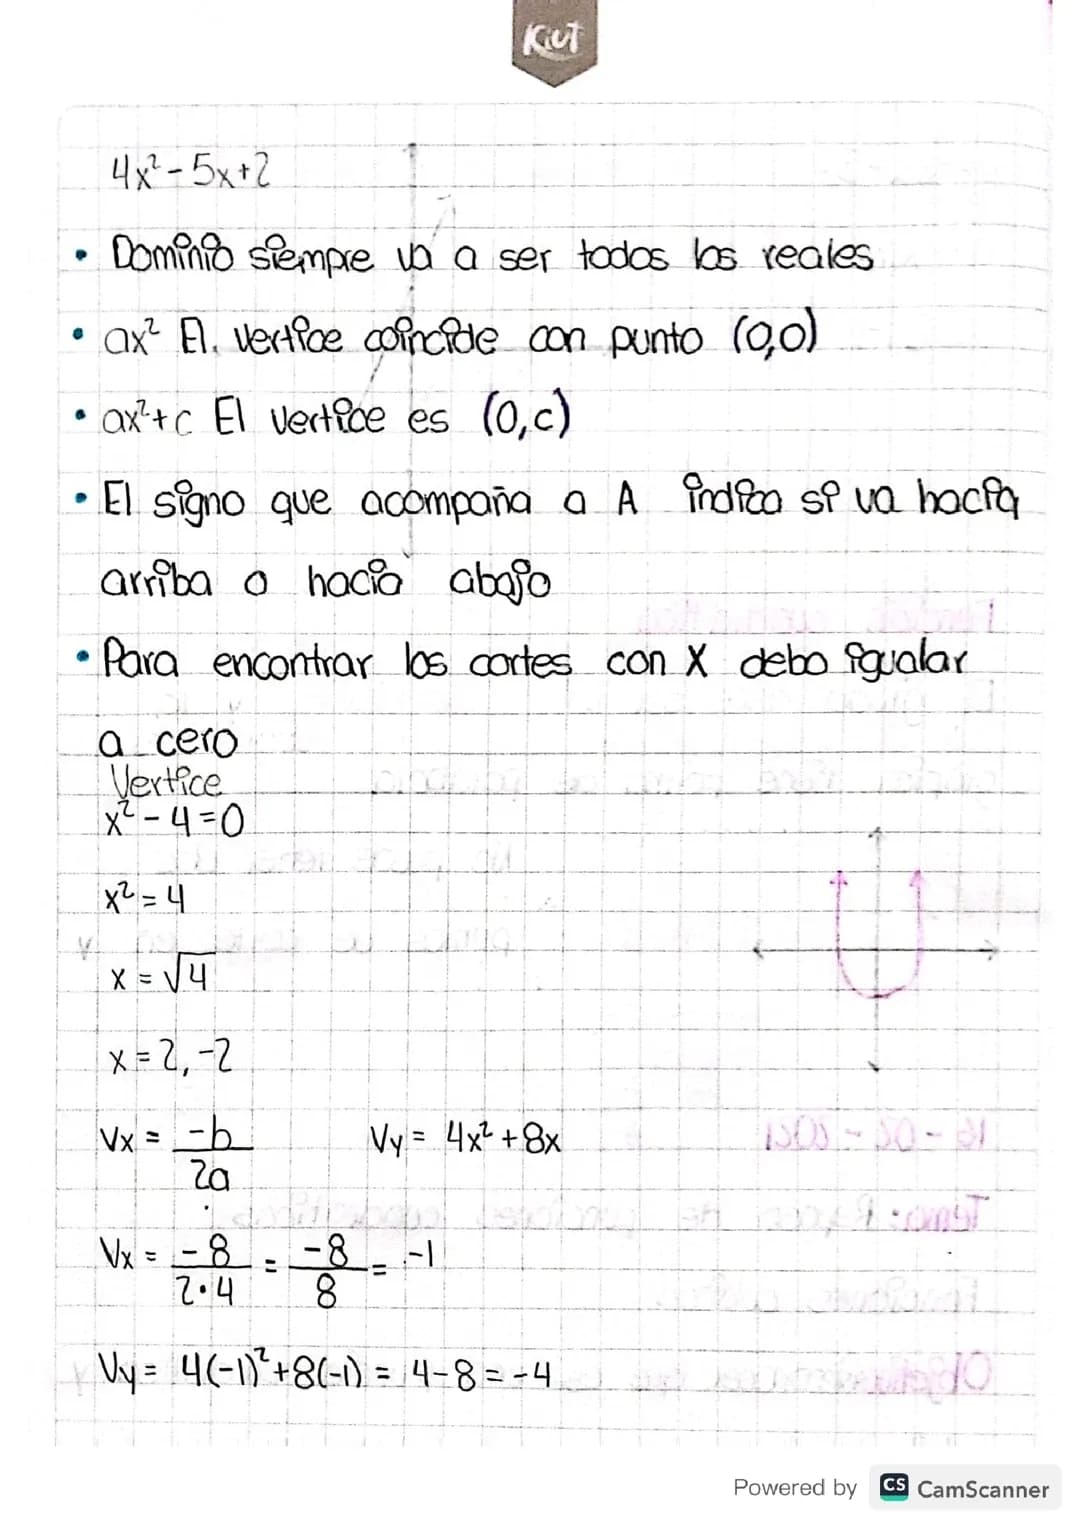 Kiut
4x² - 5x + 2
• Dominio siempre va a ser todos los reales
• ax² El. vertice coincide con punto (0,0)
• ax²+c El vertice es (0,c)
• El signo que acompaña a A indica si va hacia
arriba o hacia abajo
• Para encontrar los cortes con X debo igualar
a cero
Vertice
x² - 4 = 0
x² = 4
x = √4
x = 2, -2
Vx = -b/2a    Vy = 4x² + 8x
Vx = -8/2·4 = -8/8 = -1
Vy = 4(-1)² + 8(-1) = 4 - 8 = -4
Powered by CS CamScanner